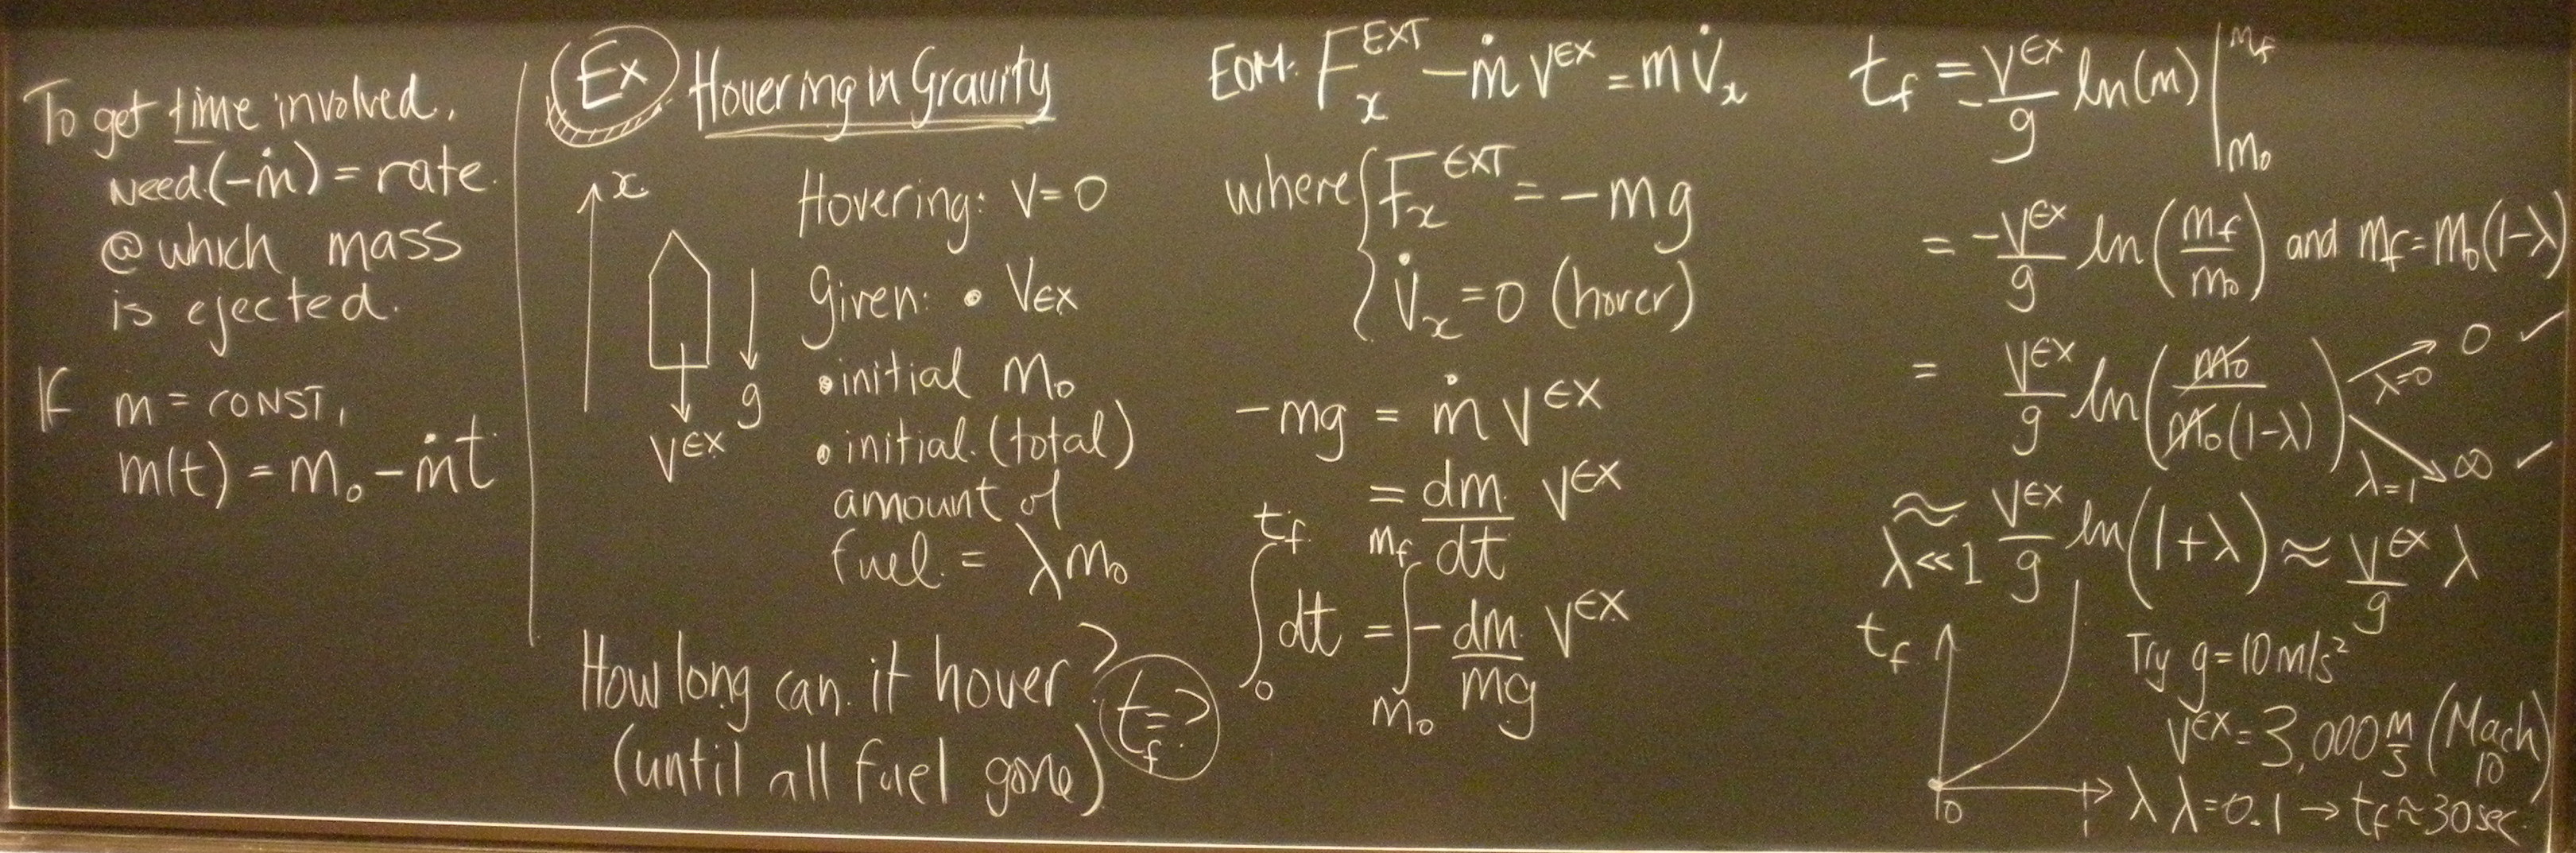 To get time involved,
need (-ṁ) = rate
@ which mass
is ejected.
If m = CONST,
m(t) = m₀ - ṁt
Ex Hovering in Gravity
x
g
V^EX
Hovering: V=0
Given: • VEX
• initial m₀
• initial (total)
amount of
fuel = λm₀
How long can it hover?
(until all fuel gone)
t_f = ?
EOM: F_x^EXT - ṁ V^EX = m V̇_x
where { F_x^EXT = -mg
V̇_x = 0 (hover)
-mg = ṁ V^EX
= dm/dt V^EX
∫₀^t_f dt = ∫_m₀^m_f - dm/mg V^EX
t_f = -V^EX/g ln(m) |_m₀^m_f
= -V^EX/g ln(m_f/m₀) and m_f = m₀(1-λ)
= V^EX/g ln(m₀/m₀(1-λ)) λ=0 → 0 ✓
λ=1 → ∞ ✓
≈ λ<<1 V^EX/g ln(1+λ) ≈ V^EX/g λ
t_f
0 1 λ
Try g=10 m/s²
V^EX = 3,000 m/s (Mach 10)
λ=0.1 → t_f ≈ 30 sec.